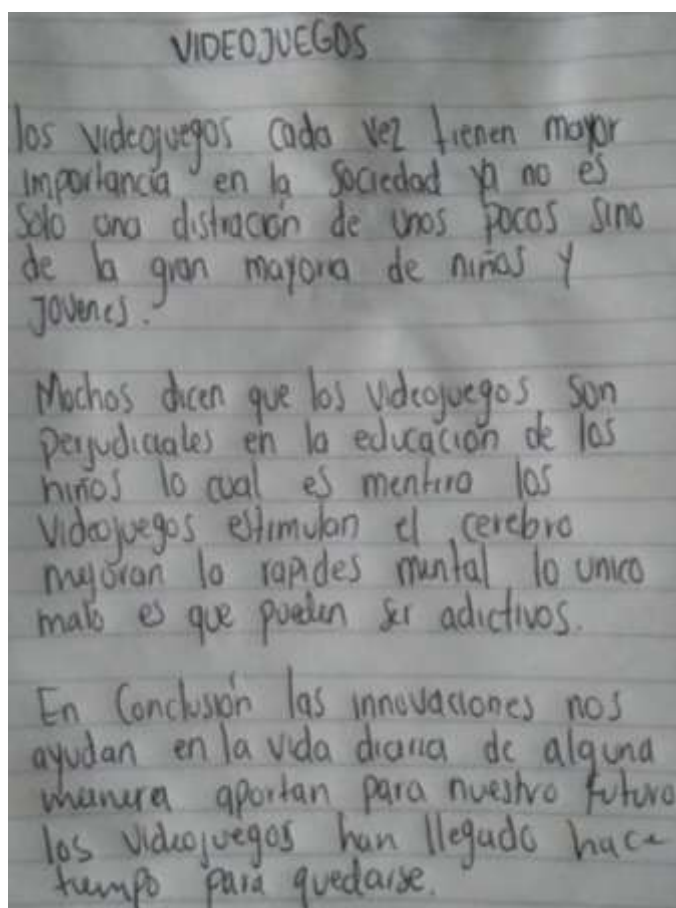 VIDEOJUEGOS
los videojuegos cada vez tienen mayor
importancia en la sociedad ya no es
solo una distracion de unos pocos sino
de la gran mayoria de niños y
jovenes.
Muchos dicen que los videojuegos son
perjudiciales en la educación de los
niños lo cual es mentira los
videojuegos estimulan el cerebro
mejoran la rapides mental lo unico
malo es que pueden ser adictivos.
En Conclusión las innovaciones nos
ayudan en la vida diaria de alguna
manera aportan para nuestro futuro
los videojuegos han llegado hace
tiempo para quedarse.